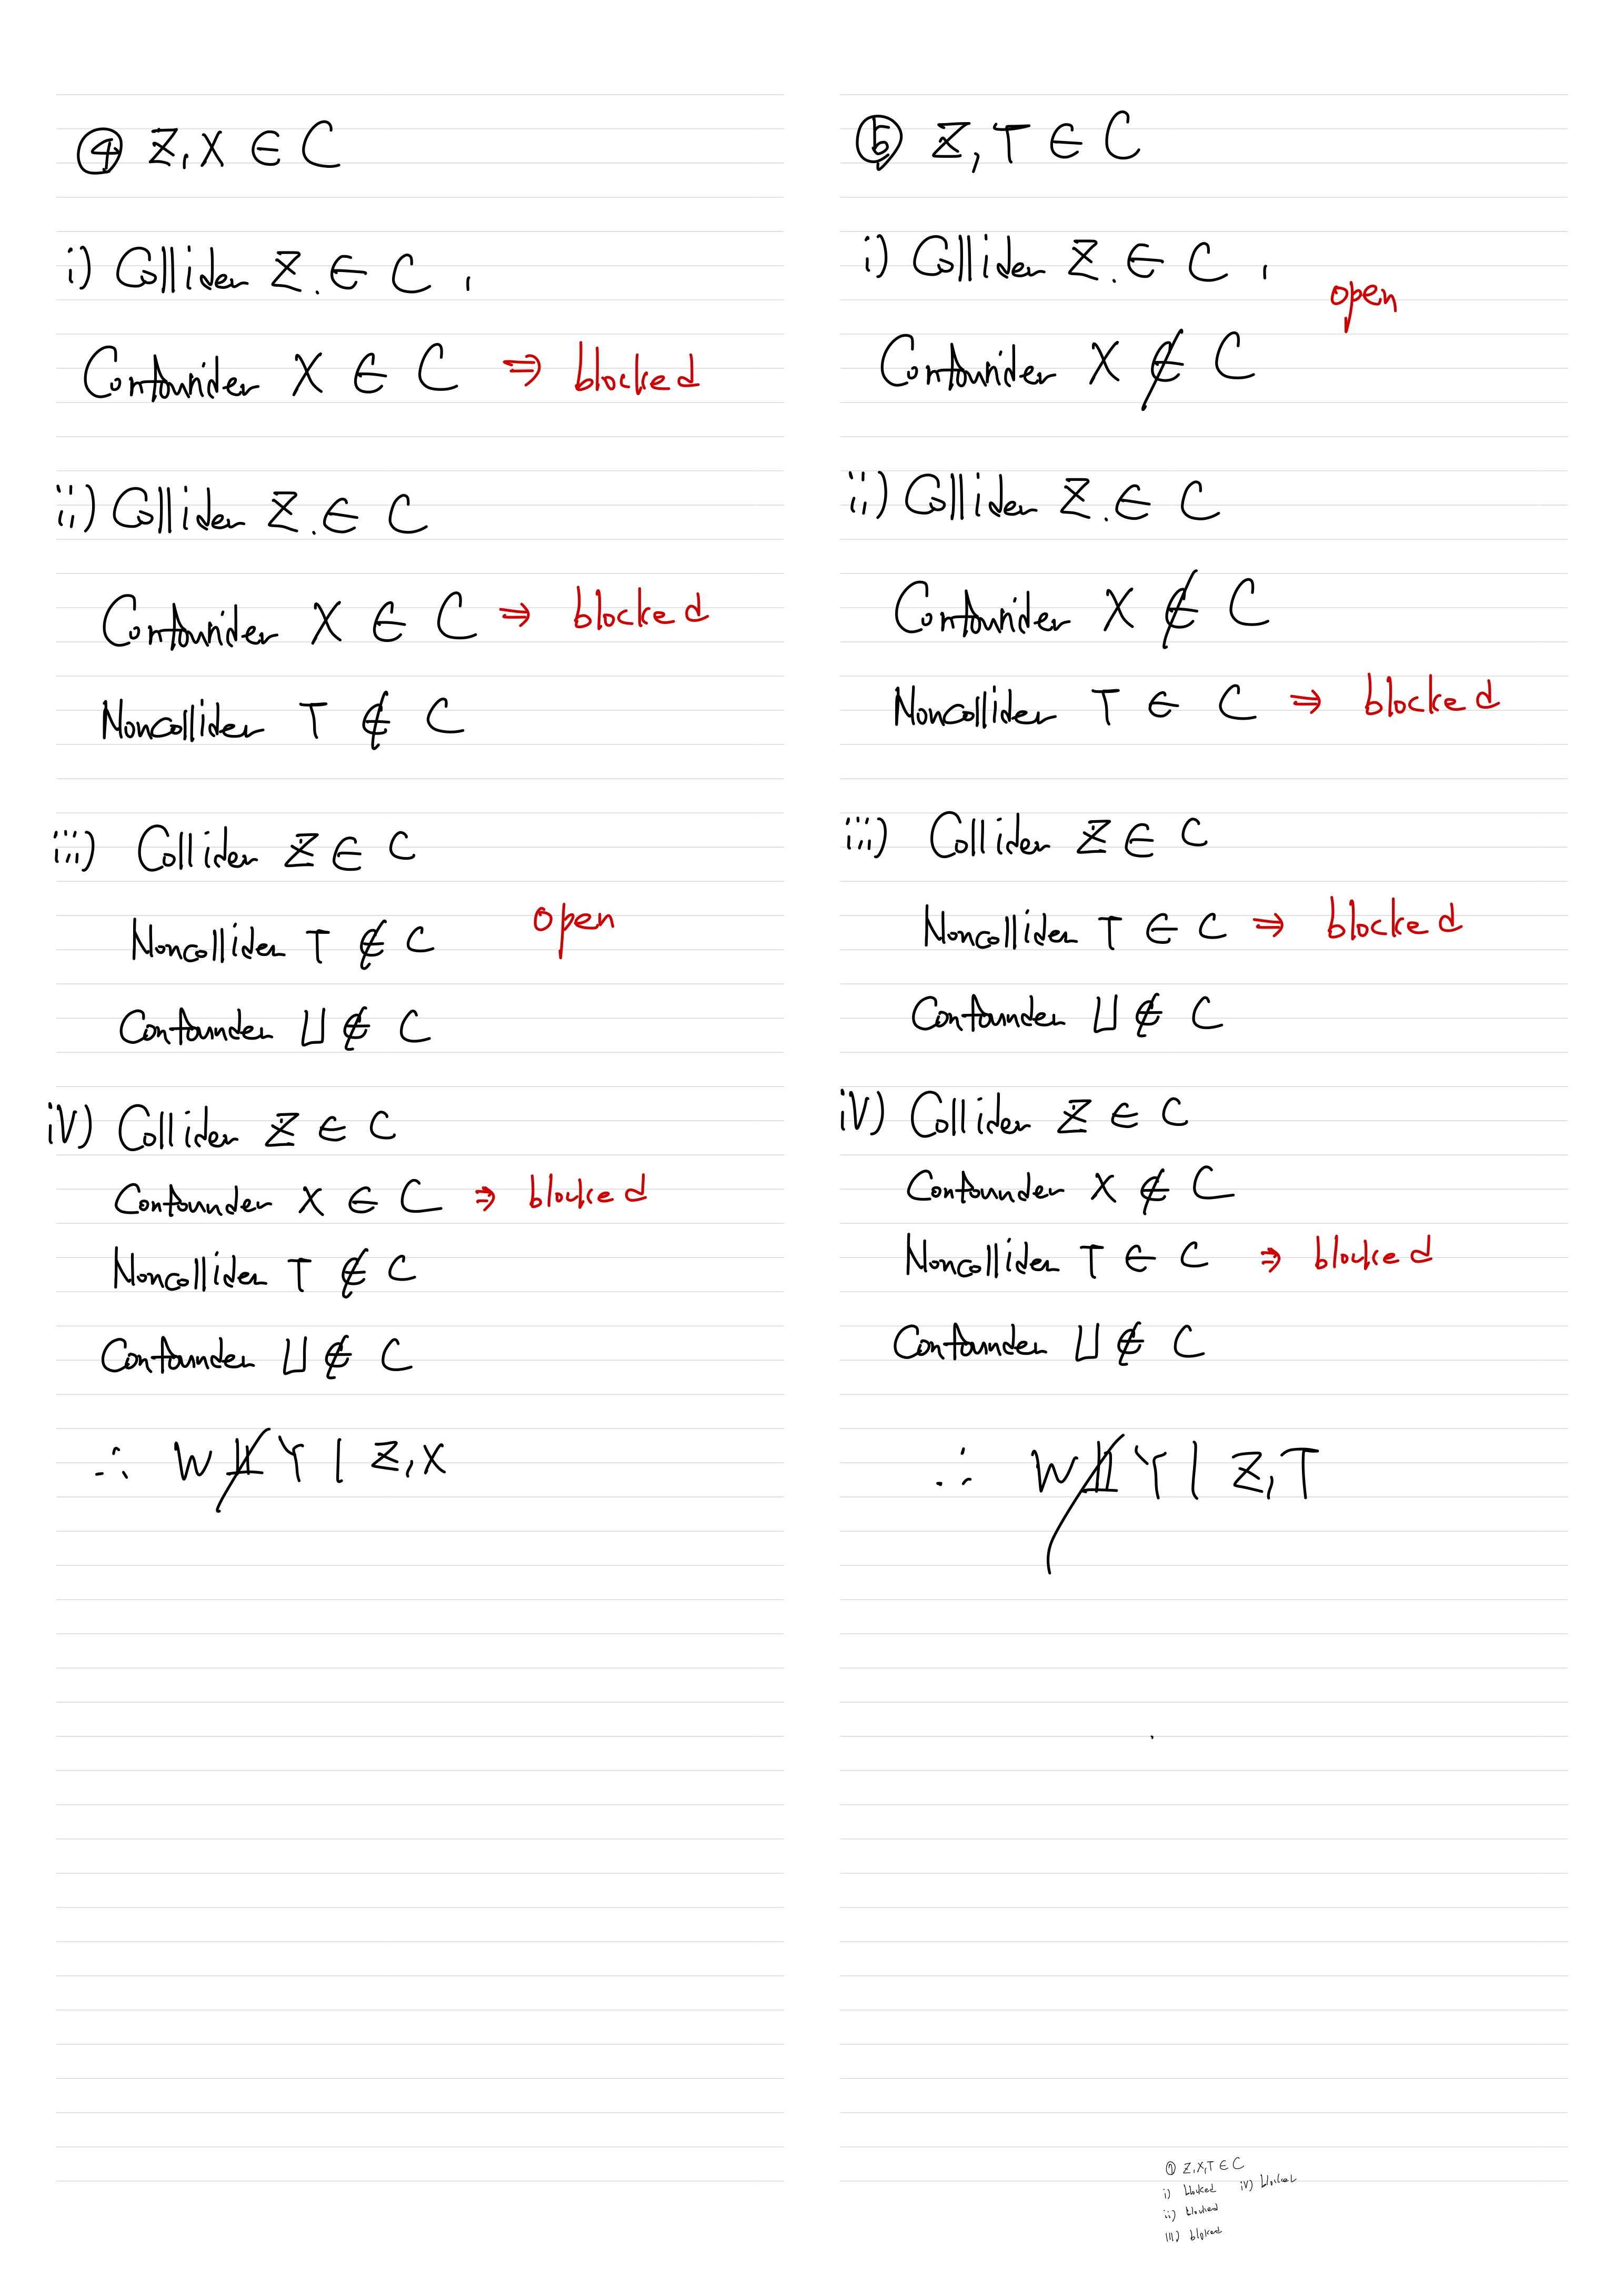 ④ Z, X ∈ C
i) Collider Z ∈ C,
Confounder X ∈ C ⇒ blocked
ii) Collider Z ∈ C
Confounder X ∈ C ⇒ blocked
Noncollider T ∉ C
iii) Collider Z ∈ C
Noncollider T ∉ C open
Confounder U ∉ C
iV) Collider Z ∈ C
Confounder X ∈ C ⇒ blocked
Noncollider T ∉ C
Confounder U ∉ C
∴ W ⫫̸ Y | Z, X
Z, T ∈ C
i) Collider Z ∈ C,
open
Confounder X ∉ C
ii) Collider Z ∈ C
Confounder X ∉ C
Noncollider T ∈ C ⇒ blocked
iii) Collider Z ∈ C
Noncollider T ∈ C ⇒ blocked
Confounder U ∉ C
iV) Collider Z ∈ C
Confounder X ∉ C
Noncollider T ∈ C ⇒ blocked
Confounder U ∉ C
∴ W ⫫̸ Y | Z, T
Z, X, T ∈ C
i) blocked iV) blocked
ii) blocked
iii) blocked